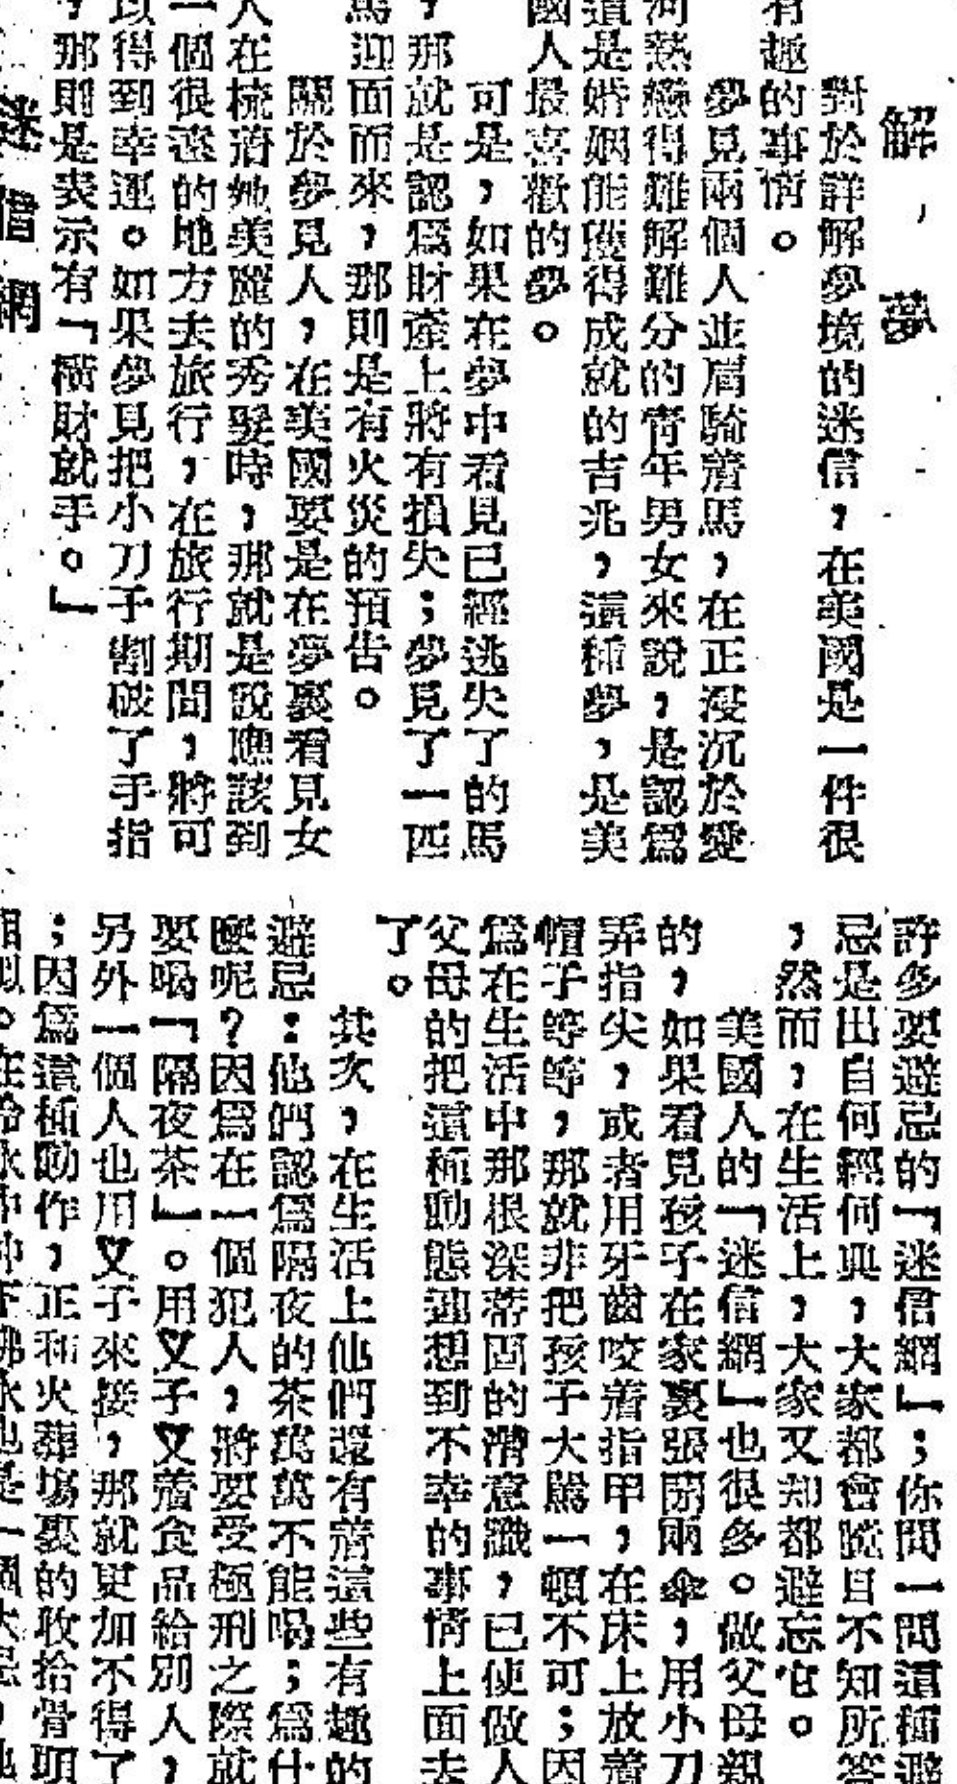 解，夢
對於詳解夢境的迷信，在美國是一件很
有趣的事情。
夢見兩個人並肩騎着馬，在正浸沉於愛
河熱戀得難解難分的青年男女來說，是認爲
這是婚姻能獲得成就的吉兆，這種夢，是美
國人最喜歡的夢。
可是，如果在夢中看見已經逃失了的馬
，那就是認爲財產上將有損失；夢見了一匹
馬迎面而來，那則是有火災的預告。
關於夢見人，在美國要是在夢裏看見女
人在梳着她美麗的秀髮時，那就是說應該到
一個很遠的地方去旅行，在旅行期間，將可
以得到幸運。如果夢見把小刀子割破了手指
，那則是表示有「橫財就手。」
迷信網
許多要避忌的「迷信網」；你問一問這種避
忌是出自何經何典，大家都會瞠目不知所答
，然而，在生活上，大家又知都避忘它。
美國人的「迷信網」也很多。做父母親
的，如果看見孩子在家裏張開兩傘，用小刀
弄指尖，或者用牙齒咬着指甲，在床上放着
帽子等等，那就非把孩子大駡一頓不可；因
爲在生活中那根深蒂固的潛意識，已使做人
父母的把這種動態連想到不幸的事情上面去
了。
其次，在生活上他們還有着這些有趣的
避忌：他們認爲隔夜的茶萬萬不能喝；爲什
麼呢？因爲在一個犯人，將要受極刑之際就
要喝「隔夜茶」。用叉子叉着食品給別人，
另外一個人也用叉子來接，那就更加不得了
；因爲這種動作，正和火葬場裏的收拾骨頭
相似。在冷水中沖下沸水也是一個大忌，